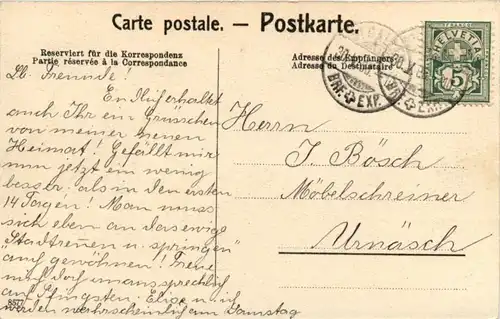 Carte postale. — Postkarte.
Reserviert für die Korrespondenz
Partie réservée à la Correspondance
Adresse des Empfängers
Adresse du Destinataire
HELVETIA
5
BRF. EXP.
Lb. Freunde!
erhaltet
auch Ihr ein Grüsschen
von meiner neuen
Heimat! Gefällt mir
nun jetzt ein wenig
besser als in den ersten
14 Tagen! Man muss
sich eben an das ewige
"Stadtrennen u. springen"
auf gewöhnen! Freue
mich doch unaussprechlich
auf Pfingsten. u. ich
werden wahrscheinlich am Samstag
Herrn
J. Bösch
Möbelschreiner
Urnäsch
8577